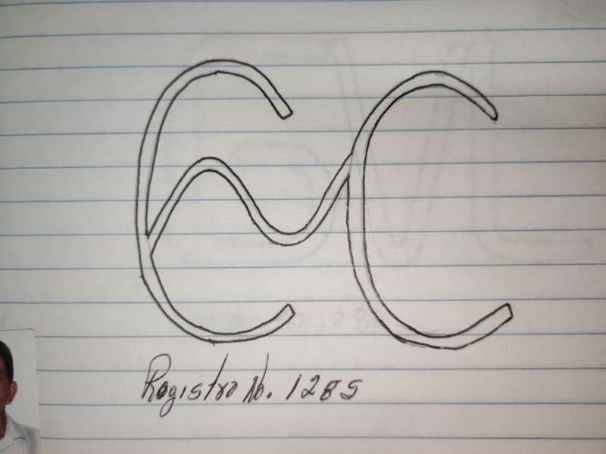 CC
Registro No. 1285